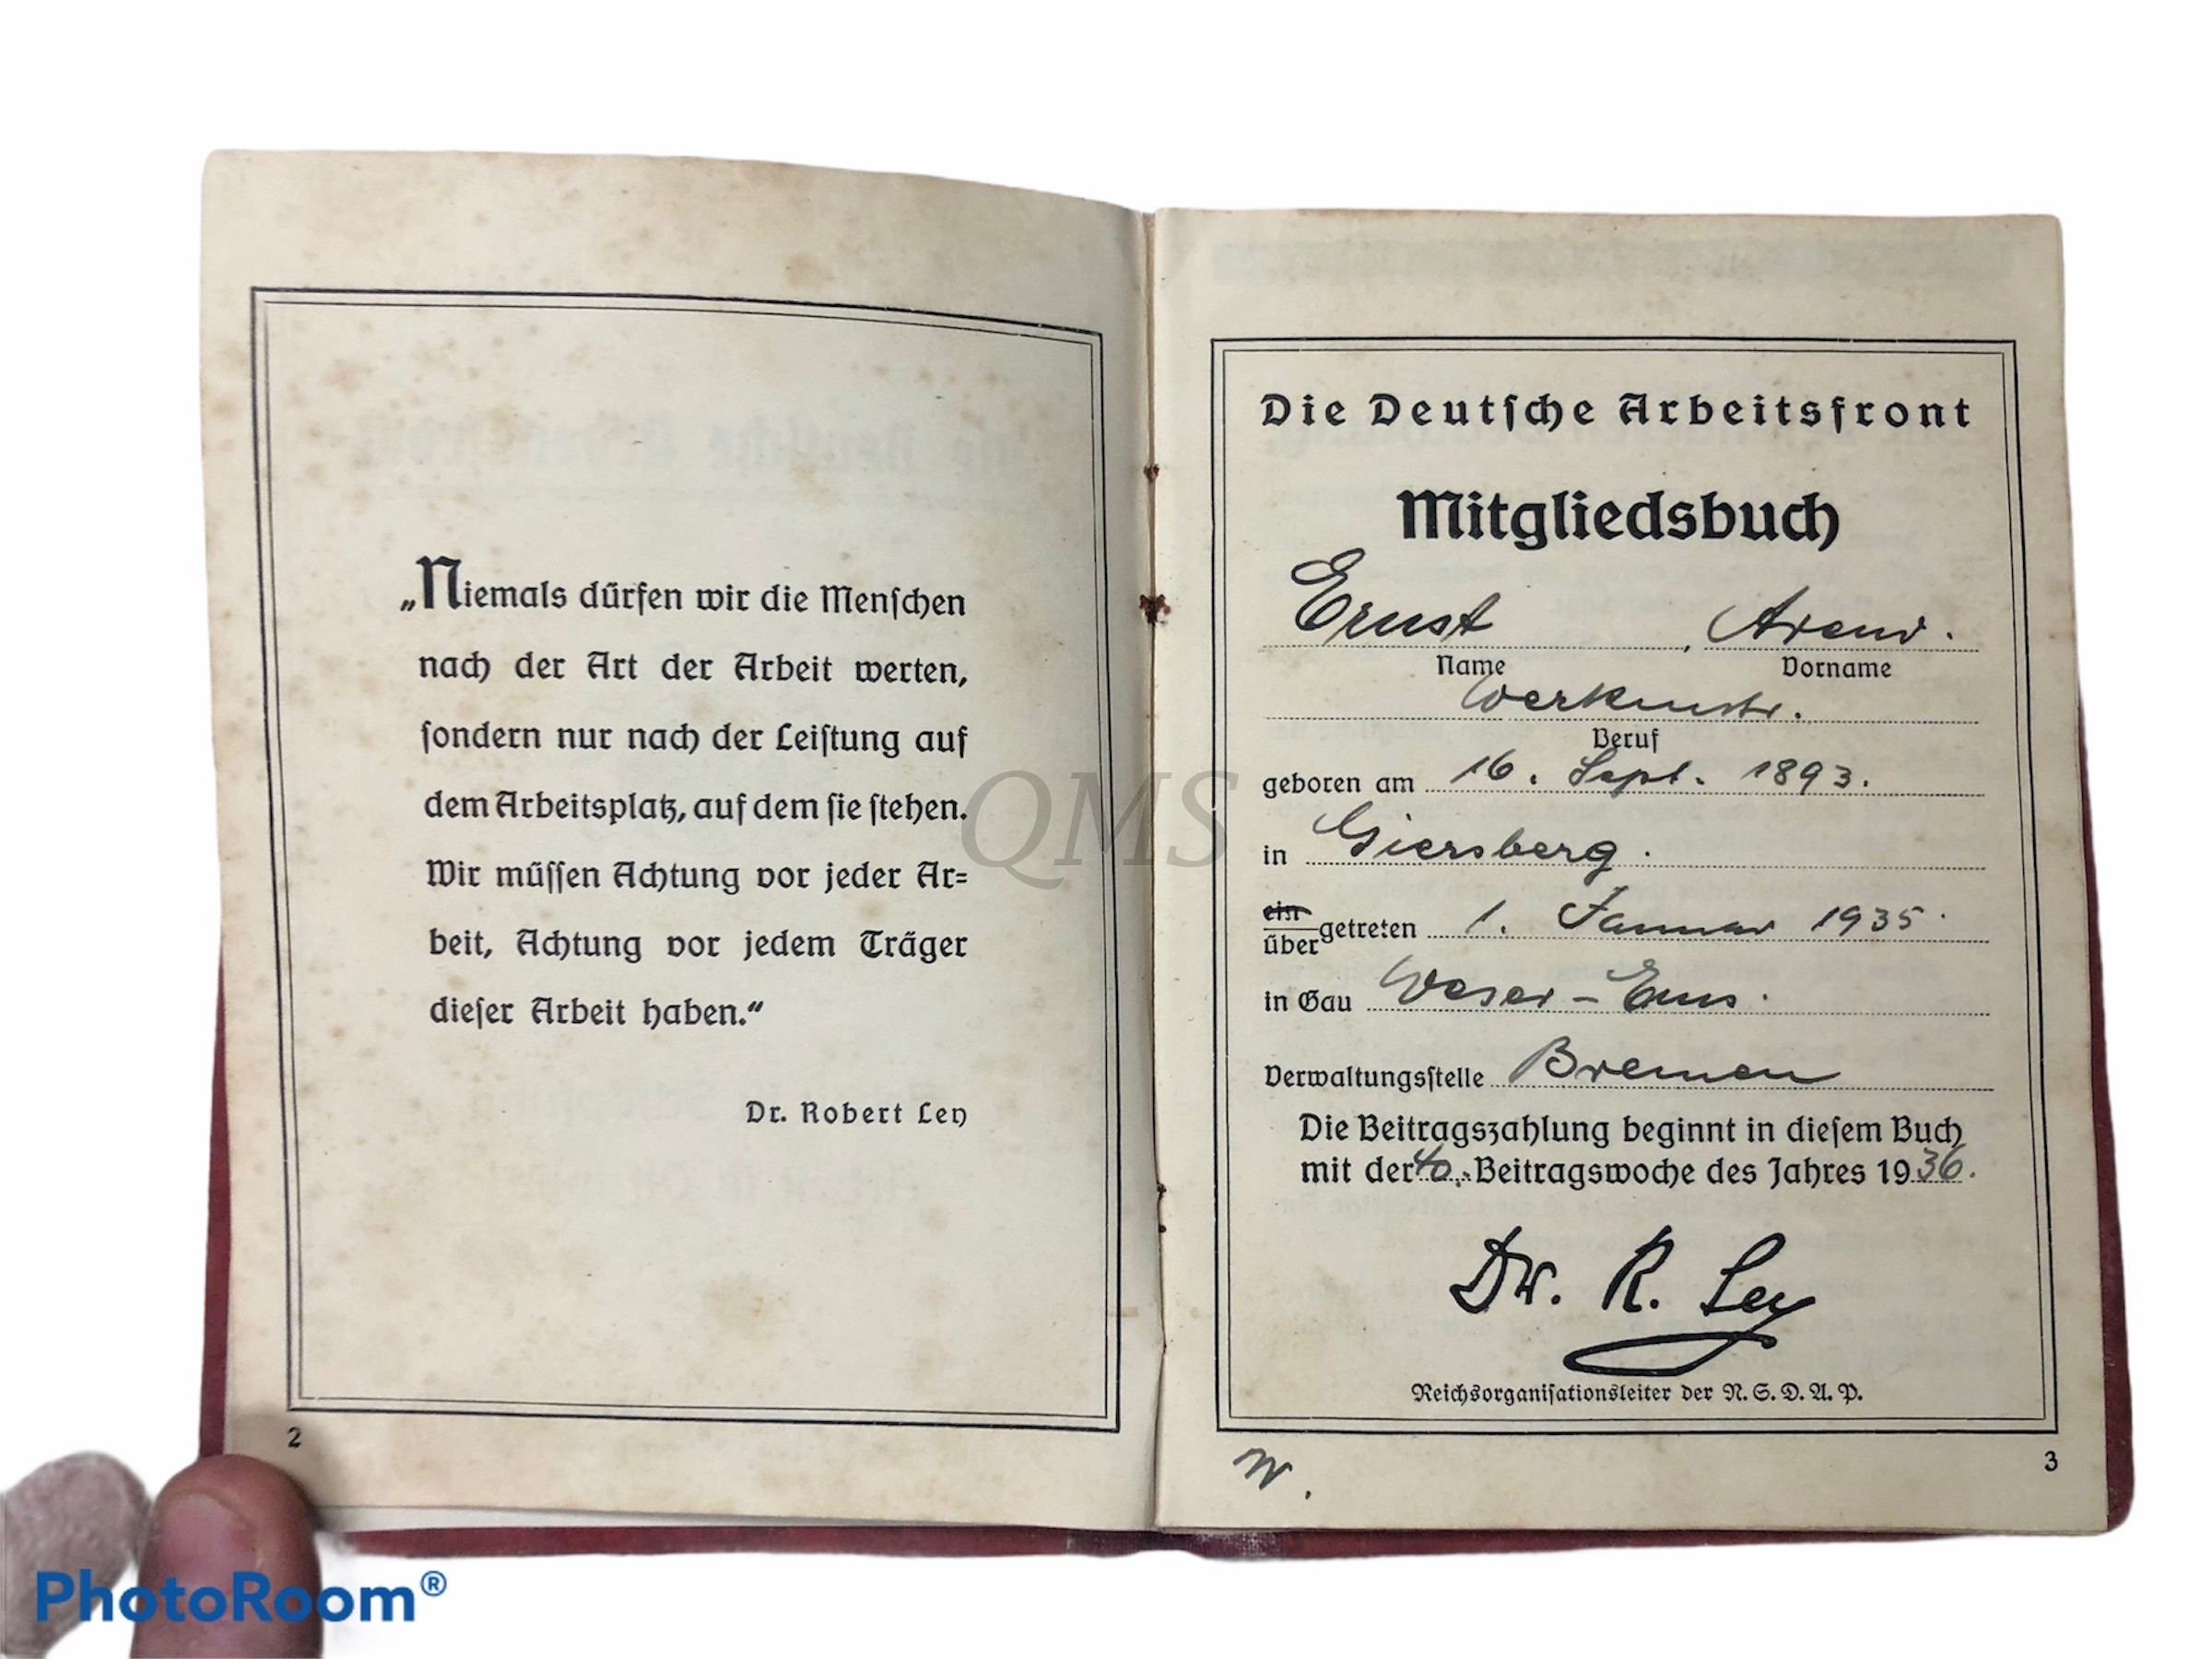 „Niemals dürfen wir die Menschen
nach der Art der Arbeit werten,
sondern nur nach der Leistung auf
dem Arbeitsplatz, auf dem sie stehen.
Wir müssen Achtung vor jeder Ar=
beit, Achtung vor jedem Träger
dieser Arbeit haben.“
Dr. Robert Ley
2
Die Deutsche Arbeitsfront
Mitgliedsbuch
Ernst, Arend.
Name Vorname
Werkmstr.
Beruf
geboren am 16. Sept. 1893.
in Giersberg.
ein
über getreten 1. Januar 1935.
in Gau Weser-Ems.
Verwaltungsstelle Bremen
Die Beitragszahlung beginnt in diesem Buch
mit der 40. Beitragswoche des Jahres 1936.
Dr. R. Ley
Reichsorganisationsleiter der N.S.D.A.P.
3
QMS
PhotoRoom®